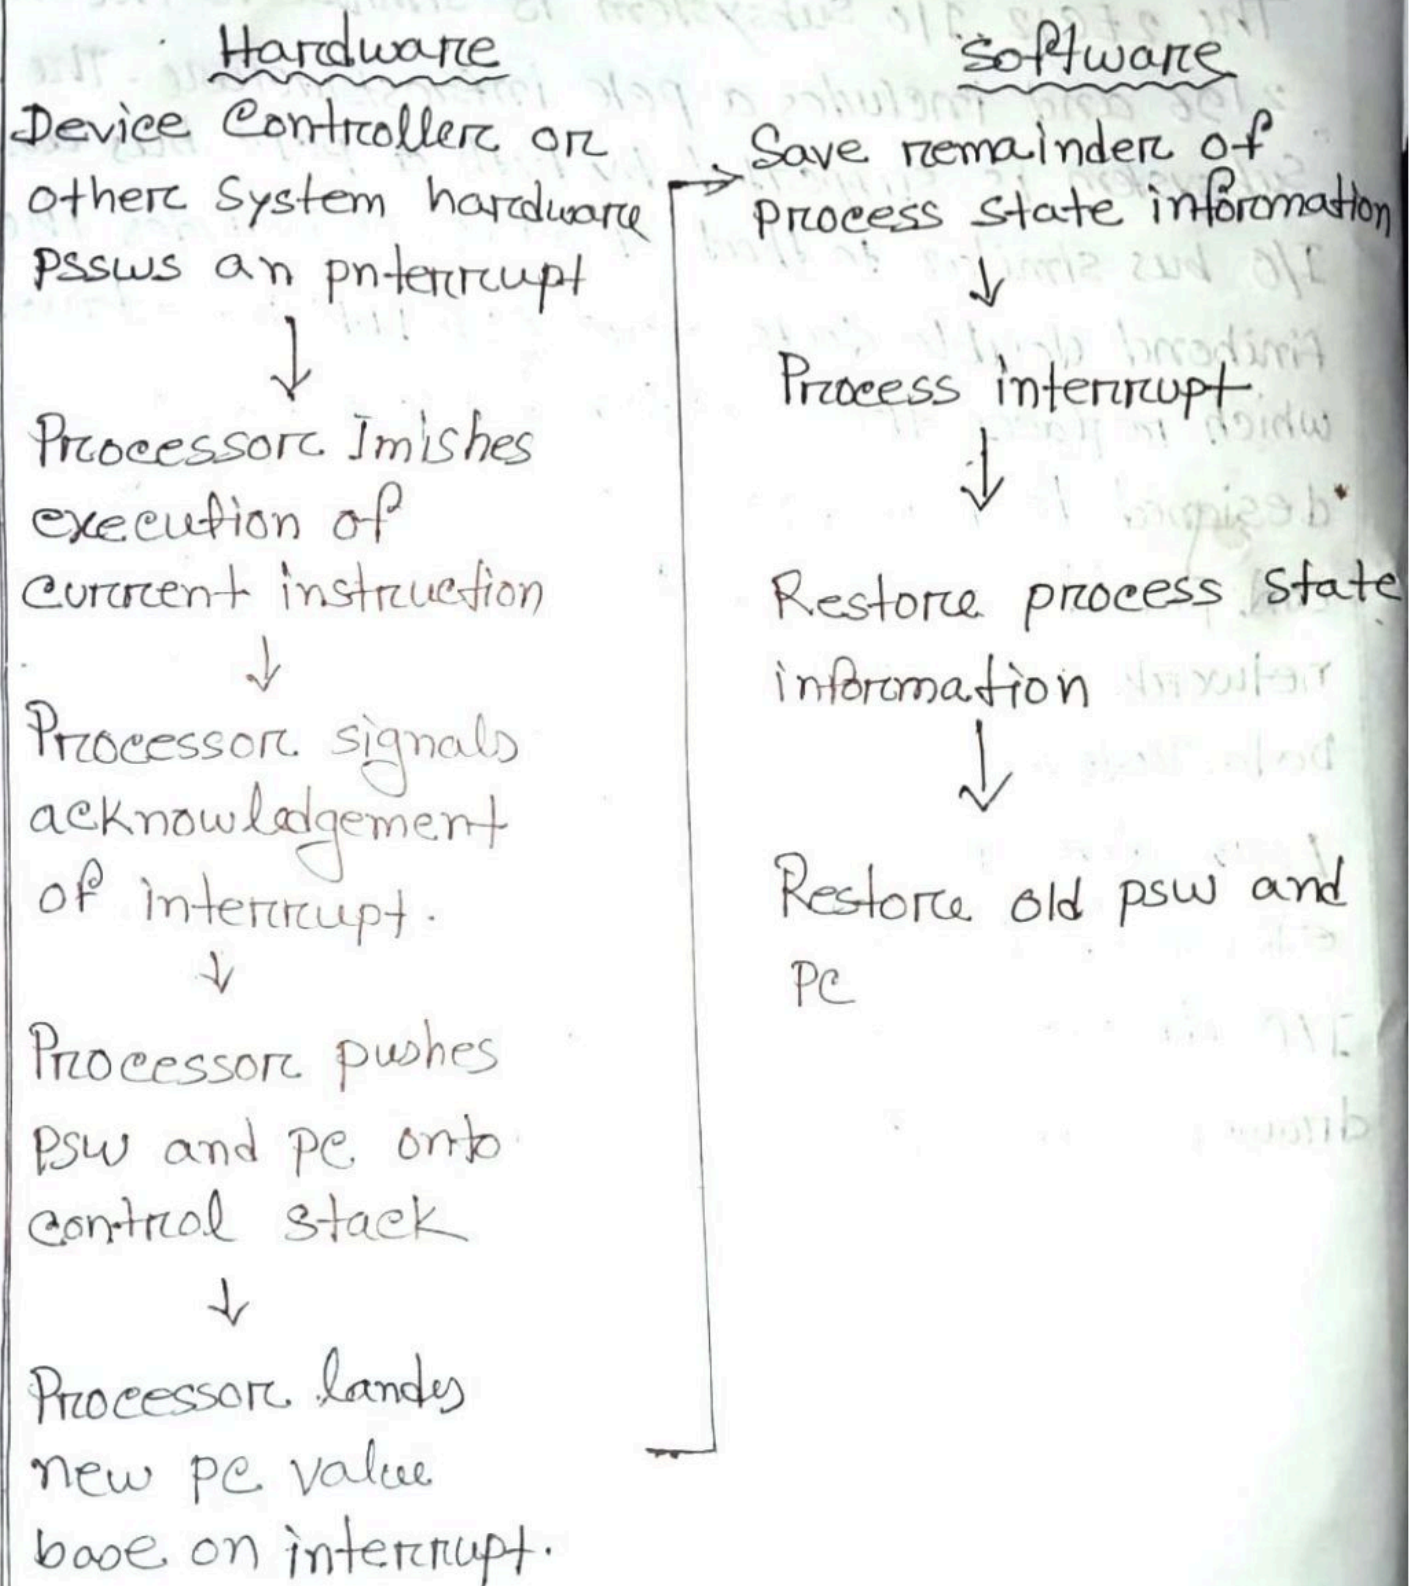 Hardware
Device Controller or
other System hardware
pssws an pnterrupt
↓
Processor Imishes
execution of
current instruction
↓
Processor signals
acknowledgement
of interrupt.
↓
Processor pushes
psw and pc onto
control stack
↓
Processor landes
new pc value
base on interrupt.
Software
Save remainder of
process state information
↓
Process interrupt
↓
Restore process state
information
↓
Restore old psw and
PC